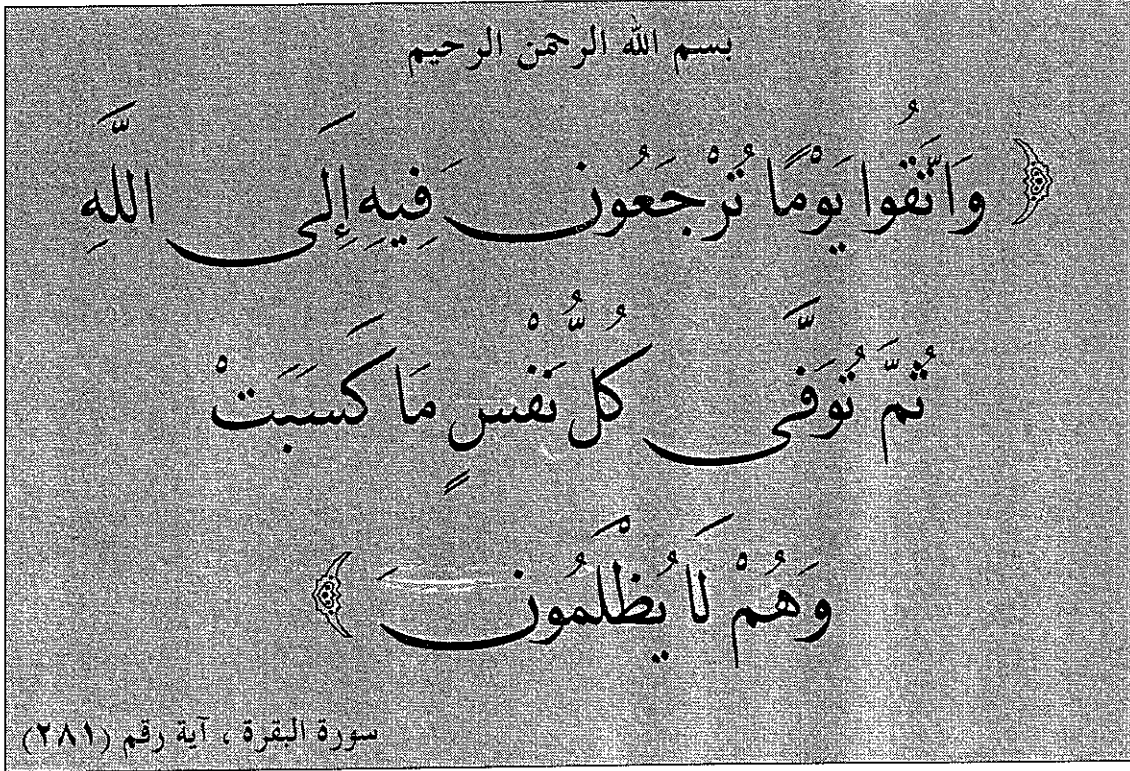 بسم الله الرحمن الرحيم
﴿ وَاتَّقُوا يَوْمًا تُرْجَعُونَ فِيهِ إِلَى اللَّهِ
ثُمَّ تُوَفَّى كُلُّ نَفْسٍ مَا كَسَبَتْ
وَهُمْ لَا يُظْلَمُونَ ﴾
سورة البقرة ، آية رقم (٢٨١)